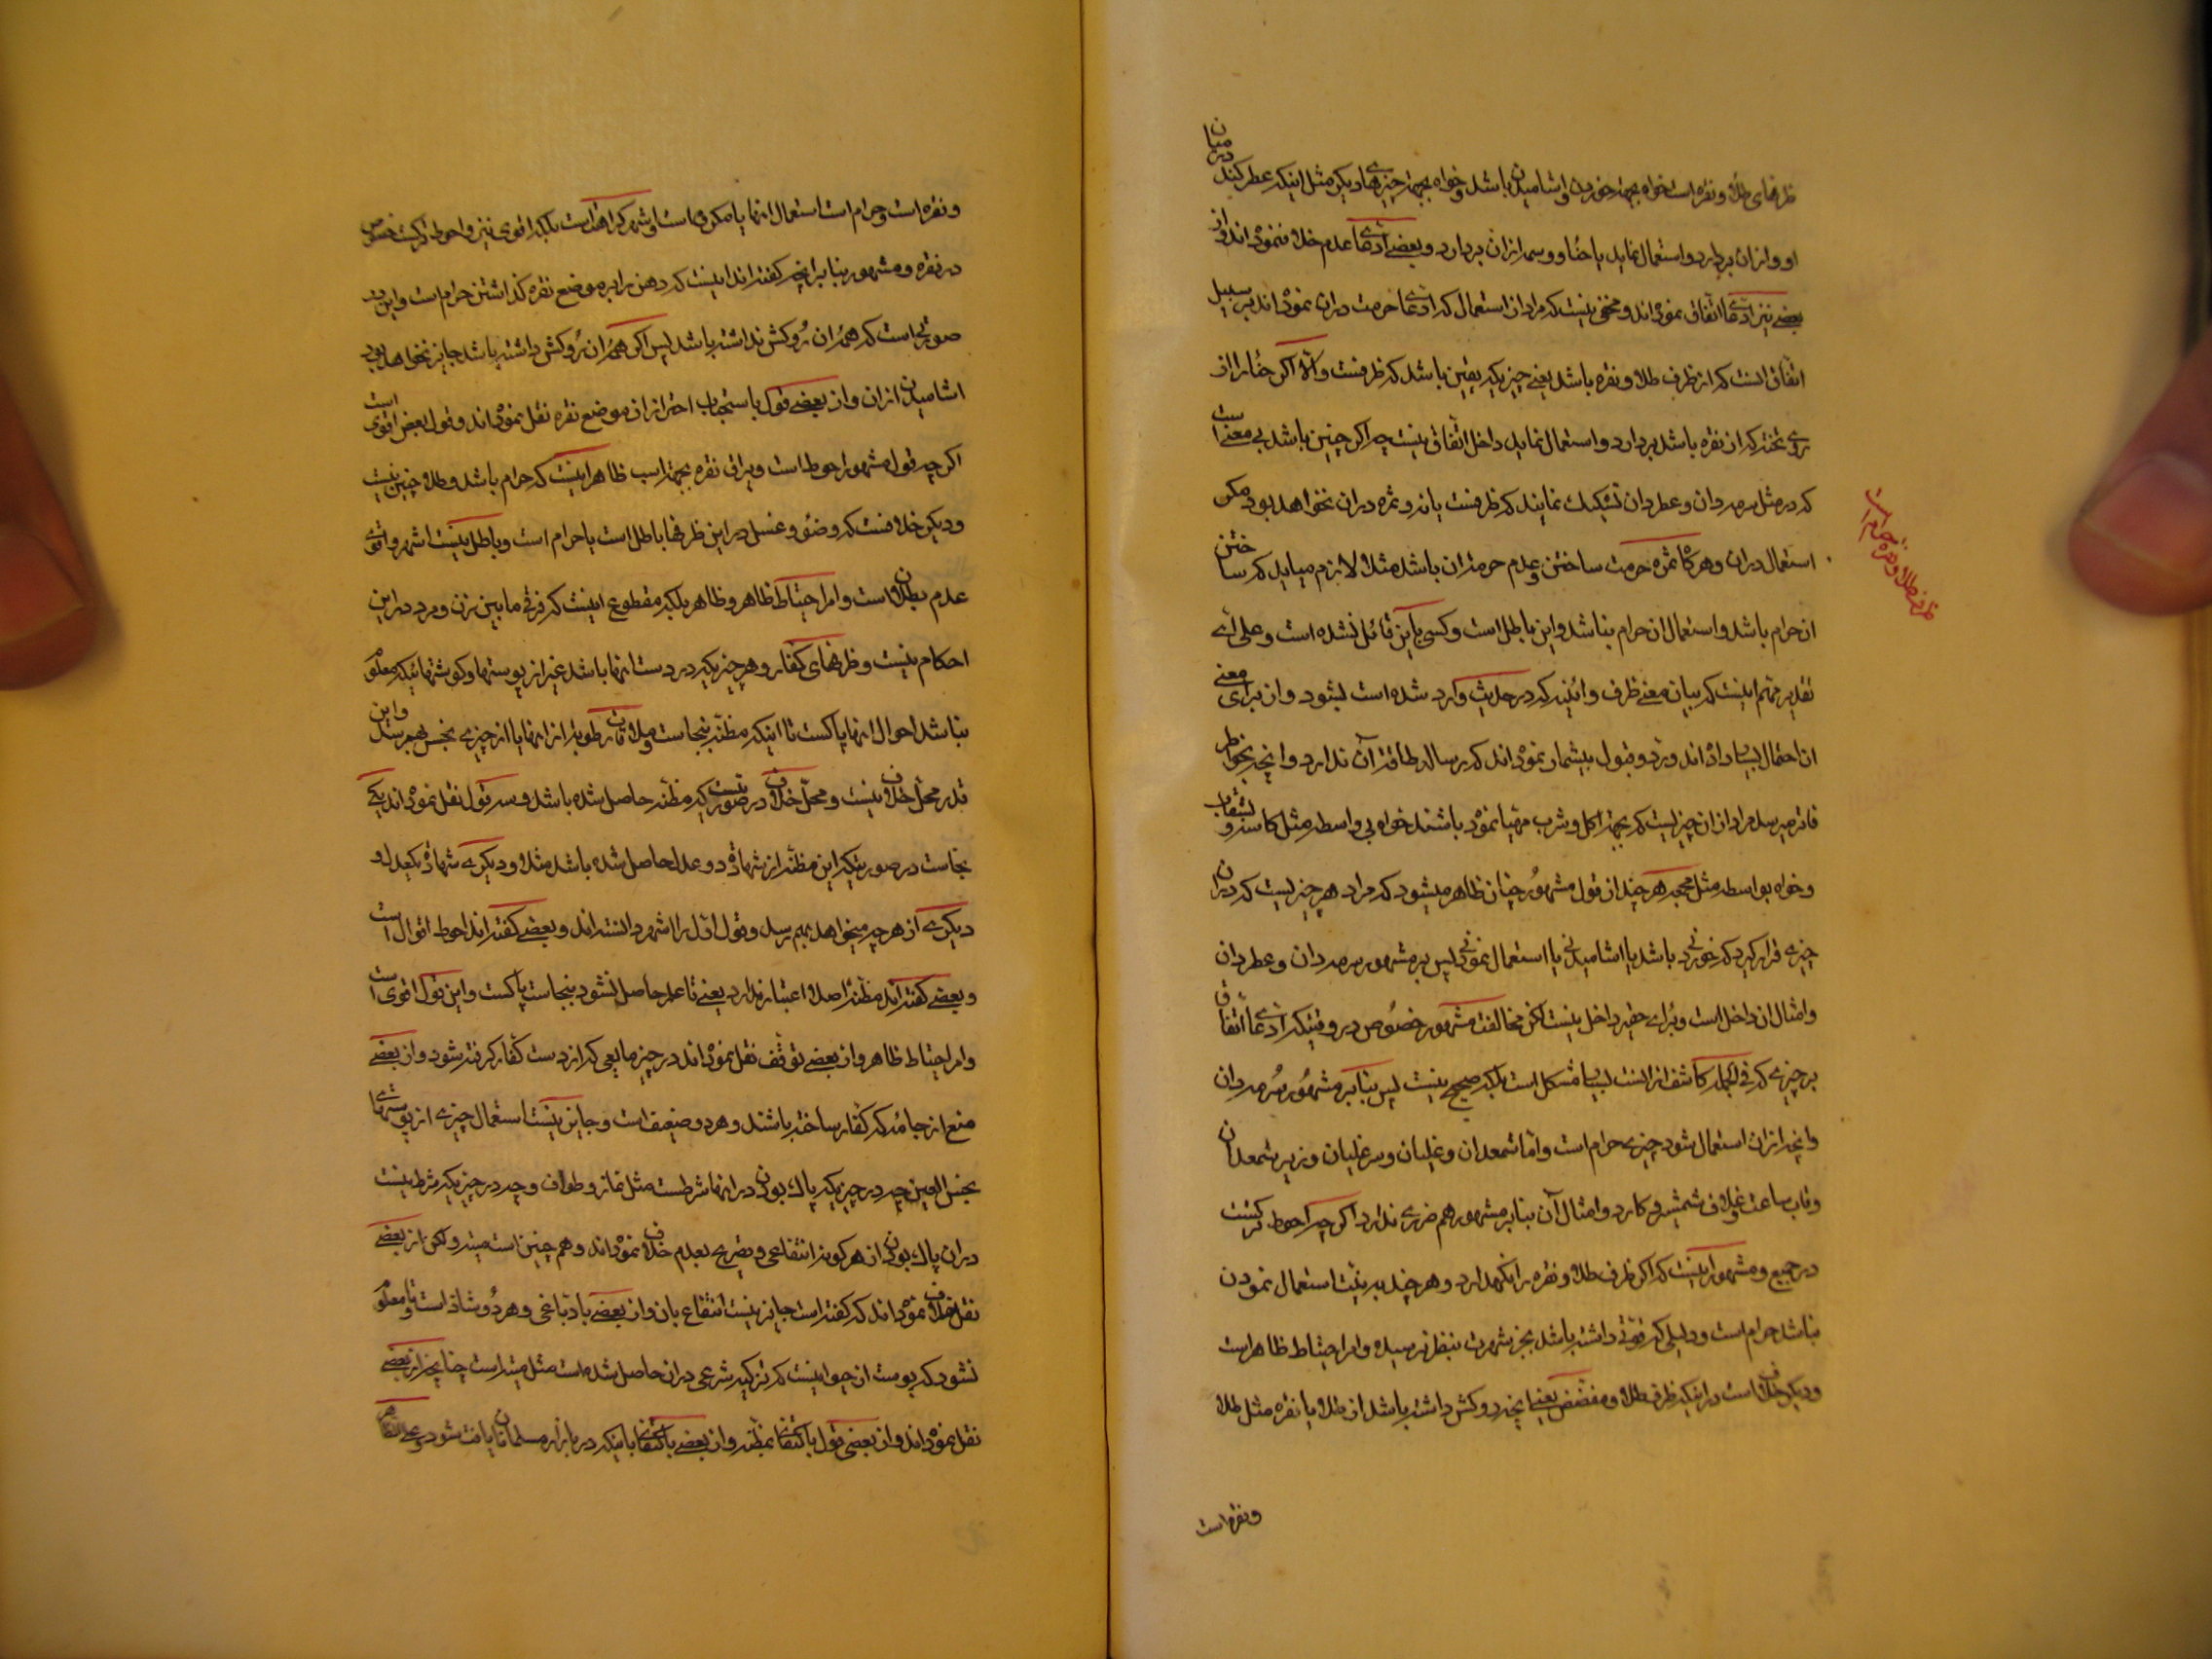 ظرفهای طلا و نقره است خواه بجهة خوردن و اشامیدن باشد و خواه بجهة چیزهای دیکر مثل اینکه عطر کند در میان
او و از ان بردارد و استعمال نماید یا حنا و وسمه از ان بردارد و بعضے ادعای عدم خلاف نموده اند و از
بعضے نیز ادعای اتفاق نموده اند و مخفی نیست که مراد از استعمال که ادعای حرمت دران نموده اند بر سبیل
اتفاق انست که از ظرف طلا و نقره باشد یعنے چیزیکه یقین باشد که ظرفست و الا اکر حنا را از
روی تخته که از نقره باشد بردارد و استعمال نماید داخل اتفاق نیست چه اکر چنین باشد بی معنے است
که در مثل سرمه دان و عطردان تشکیک نمایند که ظرفست یا نه و ثمره دران نخواهد بود مکر
استعمال دران و هرکاه ثمره حرمت ساختن و عدم حرمة ان باشد مثلا لازم میاید که ساختن
ظرف طلا و نقره حرام است
ان حرام باشد و استعمال ان حرام نباشد و این باطل است و کسی باین قائل نشده است و علی ای
تقدیر مهم اینست که بیان معنے ظرف و انیه که در حدیث وارد شده است بشود و از برای معنے
ان احتمال بسیار داده اند و رد و قبول بیشمار نموده اند که رساله طاقة آن ندارد و انچه بخواطر
فاتر میرسد مراد از ان چیزیست که بجهة اکل و شرب مهیا نموده باشند خواه بی واسطه مثل کاسه و بشقاب
و خواه بواسطه مثل مجمعه هر چند از قول مشهور چنان ظاهر میشود که مراد هر چیزیست که دران
چیزے قرار کیرد که خوردنی باشد یا اشامیدنی یا استعمال نمودنی پس بر مشهور سرمه دان و عطردان
و امثال ان داخل است و برای حقیر داخل نیست لکن مخالفت مشهور خصوص در وقتیکه ادعای اتفاق
بر چیزے که فی الجمله کاشف از انست بسیار مشکل است بلکه صحیح نیست پس بنا بر مشهور سرمه دان
و انچه از ان استعمال شود چیزیے حرام است و اما شمعدان و غلیان و سر غلیان و زیر شمعدان
و قاب ساعت و غلاف شمشیر و کارد و امثال آن بنا بر مشهور هم ضرری ندارد اکر چه احوط ترکست
در جمیع و مشهور اینست که اکر ظرف طلا و نقره را نکهدارد و هر چند به نیت استعمال نمودن
نباشد حرام است و دلیلی که قوتی داشته باشد بجز شهرت بنظر نرسیده و امر احتیاط ظاهر است
و دیکر خلاف است در اینکه ظرف طلا و مفضض یعنے انچه روکش داشته باشد از طلا یا نقره مثل طلا
و نقره است
و نقره است و حرام است استعمال انها یا مکروه است و اشهر کراهتست بلکه اقوی نیز و احوط ترکست خصوص
در نقره و مشهور بنا بر انچه کفته اند اینست که دهن را بر موضع نقره کذاشتن حرام است و این در
صورتی است که همه ان روکش نداشته باشد پس اکر همه ان روکش داشته باشد جایز نخواهد بود
اشامیدن از ان و از بعضے قول باستحباب احتراز از موضع نقره نقل نموده اند و قول بعض اقوی است
اکر چه قول مشهور احوط است و یراق نقره بجهة اسب ظاهر اینست که حرام باشد و طلا چنین نیست
و دیکر خلافست که وضو و غسل در این ظرفها باطل است یا حرام است و باطل نیست اشهر و اقوی
عدم بطلان است و امر احتیاط ظاهر و ظاهر بلکه مقطوع اینست که فرقی مابین زن و مرد در این
احکام نیست و ظرفهای کفار و هر چیزیکه در دست انها باشد غیر از پوستها و کوشتهائیکه معلوم
نباشد احوال انها پاکست تا اینکه مظنه بنجاست و ملاقات رطوبة از انها یا از چیزے نجس بهم رسد و این
قدر محل خلاف نیست و محل خلاف در صورتیست که مظنه حاصل شده باشد و سه قول نقل نموده اند یکے
نجاست در صورتیکه این مظنه از شهادة دو عدل حاصل شده باشد مثلا و دیکرے شهادة یکعدل و
دیکرے از هر چه میخواهد بهم رسد و قول اول را اشهر دانسته اند و بعضے کفته اند احوط اقوال است
و بعضے کفته اند مظنه اصلا اعتبار ندارد یعنے تا علم حاصل نشود بنجاست پاکست و این قول اقوی است
و امر احتیاط ظاهر و از بعضے توقف نقل نموده اند در چیز مایعی که از دست کفار کرفته شود و از بعضے
منع از جامه که کفار ساخته باشند و هر دو ضعیف است و جایز نیست استعمال چیزے از پوستهای
نجس العین چه در چیزیکه پاک بودن در انها شرطست مثل نماز و طواف و چه در چیزیکه شرط نیست
دران پاک بودن از هر کونه انتفاعی و تصریح بعدم خلاف نموده اند و هم چنین است میته ولکن از بعضے
نقل خلاف نموده اند که کفته است جایز نیست انتفاع بان و از بعضے با دباغی و هر دو شاذ است و تا معلوم
نشود که پوست از حیوانیست که تزکیه شرعی دران حاصل شده است مثل میته است چنانچه از بعضے
نقل نموده اند و از بعضی قول باکتفای بمظنه و از بعضے باکتفای باینکه در بازار مسلمانان یافت شود و علی الظاهر